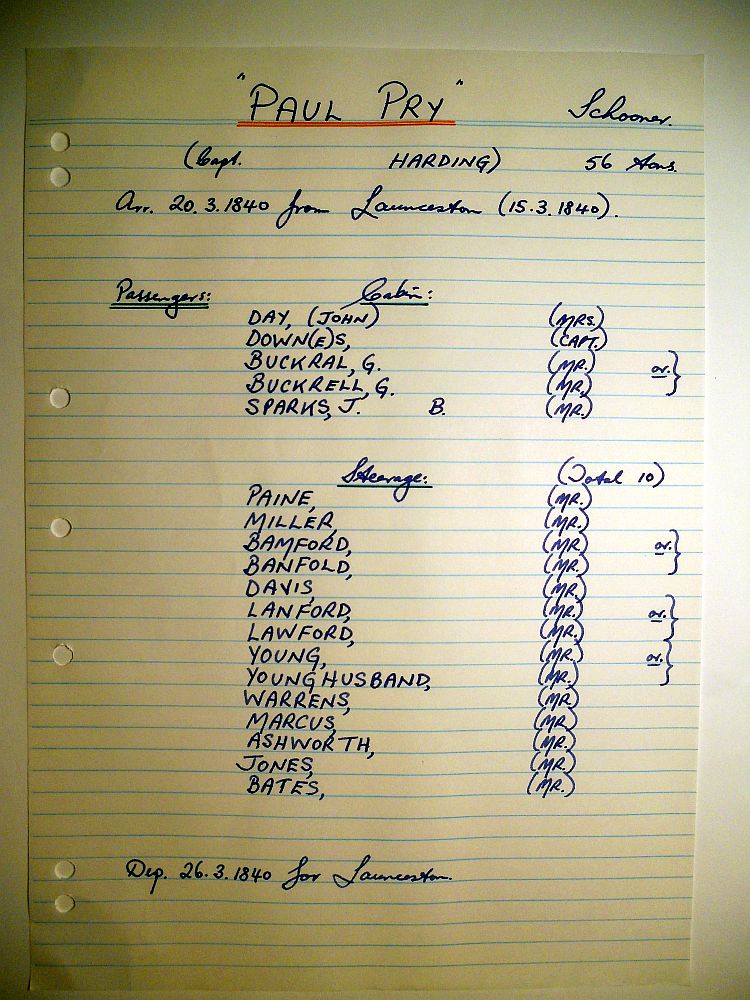 "PAUL PRY" Schooner.
(Capt. HARDING) 56 tons.
Arr. 20.3.1840 from Launceston (15.3.1840).
Passengers: Cabin:
DAY, (JOHN) (MRS.)
DOWN(E)S, (CAPT.)
BUCKRAL, G. (MR.) or. }
BUCKRELL, G. (MR.)
SPARKS, J. B. (MR.)
Steerage: (Total 10)
PAINE, (MR.)
MILLER, (MR.)
BAMFORD, (MR.) or. }
BANFOLD, (MR.)
DAVIS, (MR.)
LANFORD, (MR.) or. }
LAWFORD, (MR.)
YOUNG, (MR.) or. }
YOUNGHUSBAND, (MR.)
WARRENS, (MR.)
MARCUS, (MR.)
ASHWORTH, (MR.)
JONES, (MR.)
BATES, (MR.)
Dep. 26.3.1840 for Launceston.